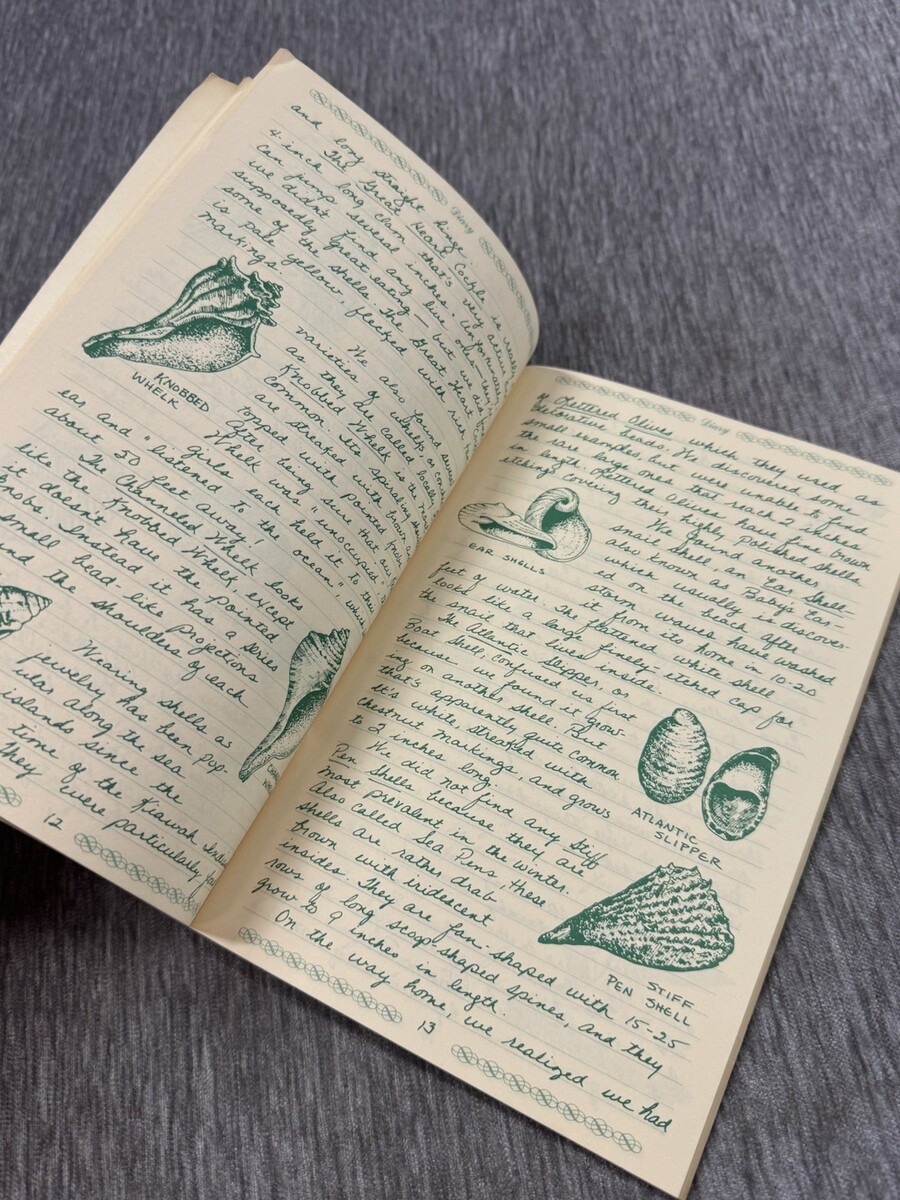 Diary
and long straight hinge.
The Great Heart Cockle is
4-inch long clam that's very active
can jump several inches.
we didn't find any live ones
supposedly great eating — but we
some of the shells. The Great
is pale yellow, flecked with
markings.
We also found
varieties of whelks or
as they are called locally.
Knobbed Whelk is the
common. Its spiraling
are streaked with brown
topped with pointed
After being sure that
Whelk was "unoccupied
Girls each held it to
ear and "listened to the ocean",
about 50 feet away!
The Channeled Whelk looks
like the Knobbed Whelk except
it doesn't have the pointed
knobs. Instead it has a series
small bead-like projections
the shoulders of each
Wearing shells as
jewelry has been pop-
ular along the sea
islands since the
time of the Kiawah
They were particularly
KNOBBED
WHELK
12
Diary
of Lettered Olives which they used as
decorative beads. We discovered some
small examples, but were unable to find
the rare large ones that reach 2 inches
in length. Lettered Olives have fine brown
etching covering their highly polished shells.
We found another
snail shell, an Ear Shell
also known as Baby's Ear—
which usually is discover-
ed on the beach after
storm waves have washed
it from its home in 10-20
feet of water. The flattened white shell
looks like a large finely etched cap for
the snail that lives inside.
The Atlantic Slipper, or
Boat Shell, confused us first
because we found it grow-
ing on another shell. But
that's apparently quite common
It's white, streaked with
chestnut markings, and grows
to 2 inches long.
We did not find any Stiff
Pen Shells because they are
most prevalent in the winter.
Also called Sea Pens, these
shells are rather drab
brown with iridescent
insides. They are fan-shaped with 15-25
rows of long scoop-shaped spines, and they
grow to 9 inches in length.
On the way home, we realized we had
EAR SHELLS
ATLANTIC
SLIPPER
STIFF
PEN SHELL
13